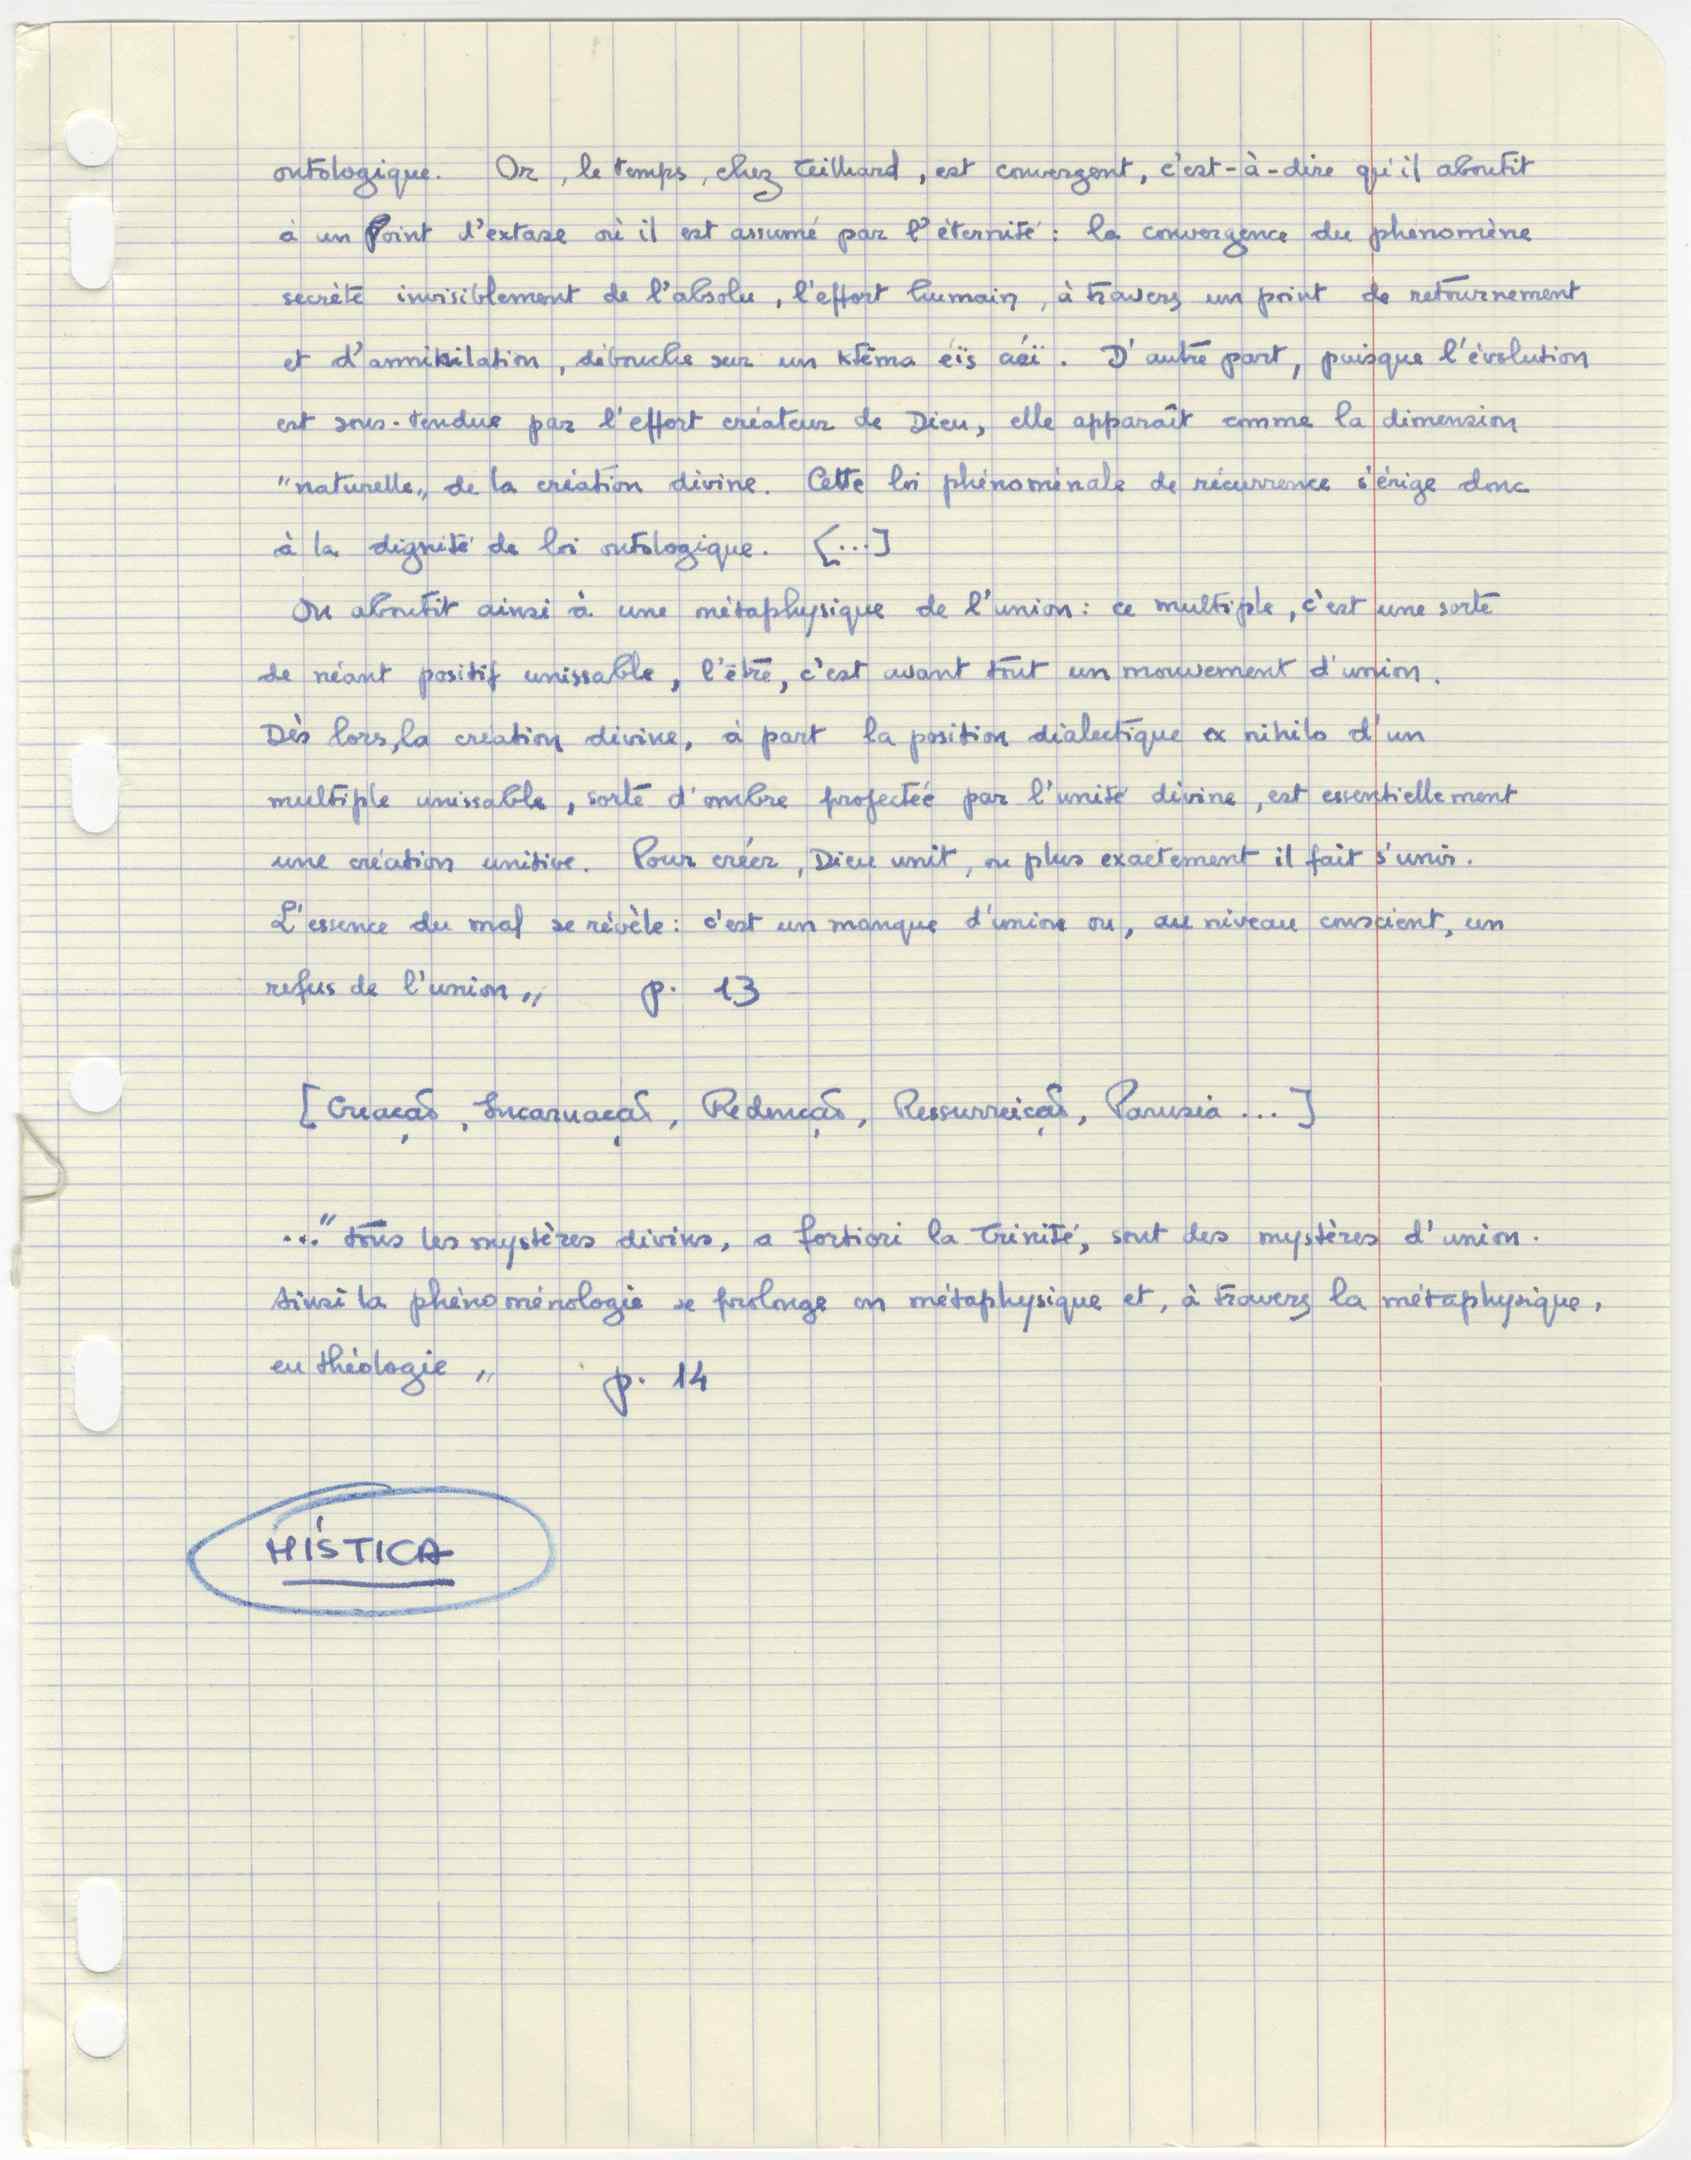 ontologique. Or, le temps, chez Teilhard, est convergent, c'est-à-dire qu'il aboutit
à un Point d'extase où il est assumé par l'éternité : la convergence du phénomène
secrète invisiblement de l'absolu, l'effort humain, à travers un point de retournement
et d'annihilation, débouche sur un ktêma éïs aéï. D'autre part, puisque l'évolution
est sous-tendue par l'effort créateur de Dieu, elle apparaît comme la dimension
"naturelle" de la création divine. Cette loi phénoménale de récurrence s'érige donc
à la dignité de loi ontologique. [...]
On aboutit ainsi à une métaphysique de l'union : ce multiple, c'est une sorte
de néant positif unissable, l'être, c'est avant tout un mouvement d'union.
Dès lors, la création divine, à part la position dialectique ex nihilo d'un
multiple unissable, sorte d'ombre projectée par l'unité divine, est essentiellement
une création unitive. Pour créer, Dieu unit, ou plus exactement il fait s'unir.
L'essence du mal se révèle : c'est un manque d'union ou, au niveau conscient, un
refus de l'union" p. 13
[Criação, Incarnação, Redenção, Ressurreição, Parusia ...]
..." tous les mystères divins, a fortiori la Trinité, sont des mystères d'union.
Ainsi la phénoménologie se prolonge en métaphysique et, à travers la métaphysique,
en théologie" p. 14
MÍSTICA